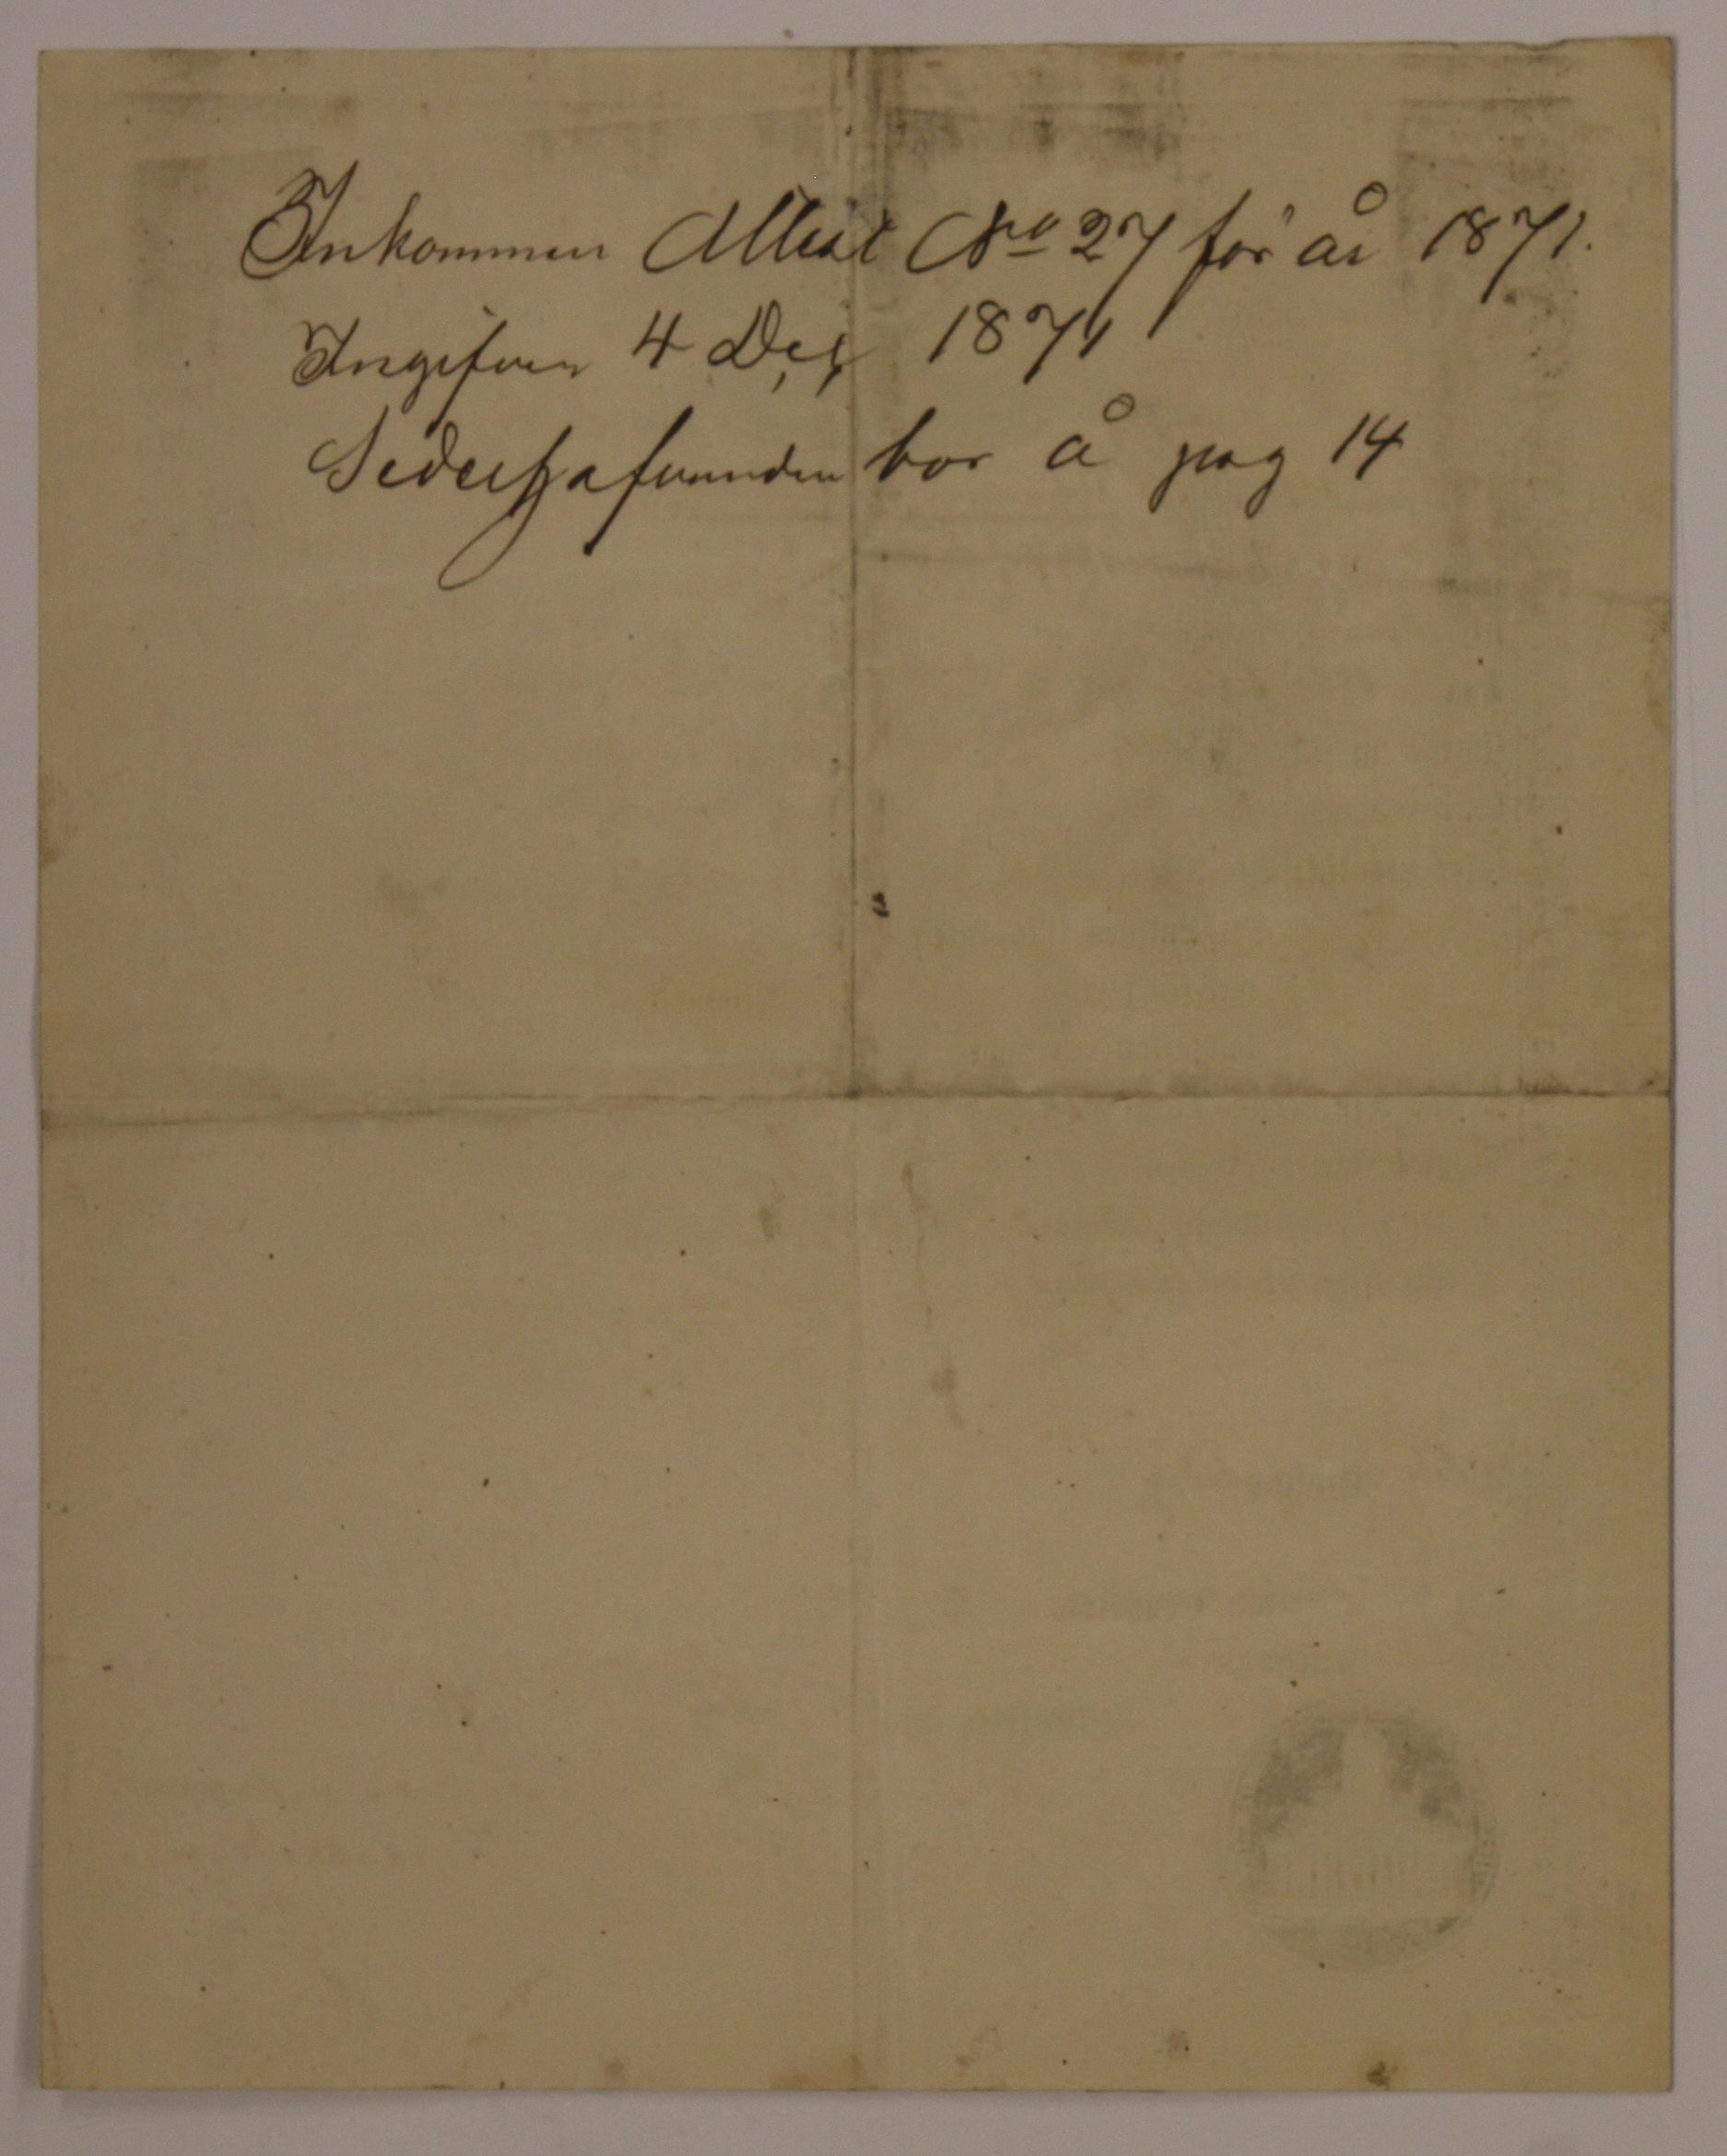 Inkommen Attest No 27 för år 1871.
Ingifven 4 Dec, 1871
bor å pag 14